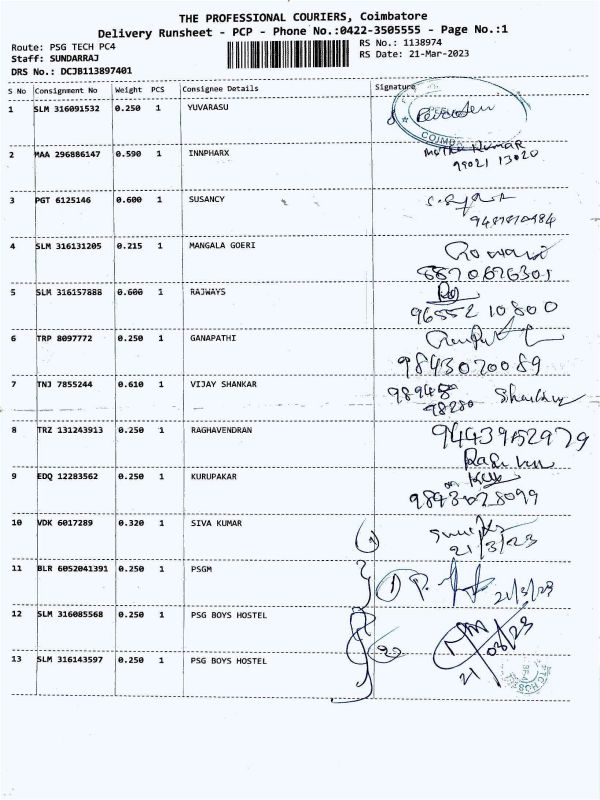 THE PROFESSIONAL COURIERS, Coimbatore
Delivery Runsheet - PCP - Phone No.:0422-3505555 - Page No.:1
Route: PSG TECH PC4
Staff: SUNDARRAJ
DRS No.: DCJB113897401
RS No.: 1138974
RS Date: 21-Mar-2023
S No Consignment No Weight PCS Consignee Details Signature
1 SLM 316091532 0.250 1 YUVARASU
COIMB
2 MAA 296886147 0.590 1 INNPHARX
Kumar
99021 13020
3 PGT 6125146 0.600 1 SUSANCY
4 SLM 316131205 0.215 1 MANGALA GOERI
8870626301
5 SLM 316157888 0.600 1 RAJWAYS
96552 10800
6 TRP 8097772 0.250 1 GANAPATHI
9843020089
7 TNJ 7855244 0.610 1 VIJAY SHANKAR
98280
8 TRZ 131243913 0.250 1 RAGHAVENDRAN
9443952979
9 EDQ 12283562 0.250 1 KURUPAKAR
9843028099
10 VDK 6017289 0.320 1 SIVA KUMAR
21/3/23
11 BLR 6052041391 0.250 1 PSGM
1 21/3/23
12 SLM 316085568 0.250 1 PSG BOYS HOSTEL
13 SLM 316143597 0.250 1 PSG BOYS HOSTEL
21/03/23